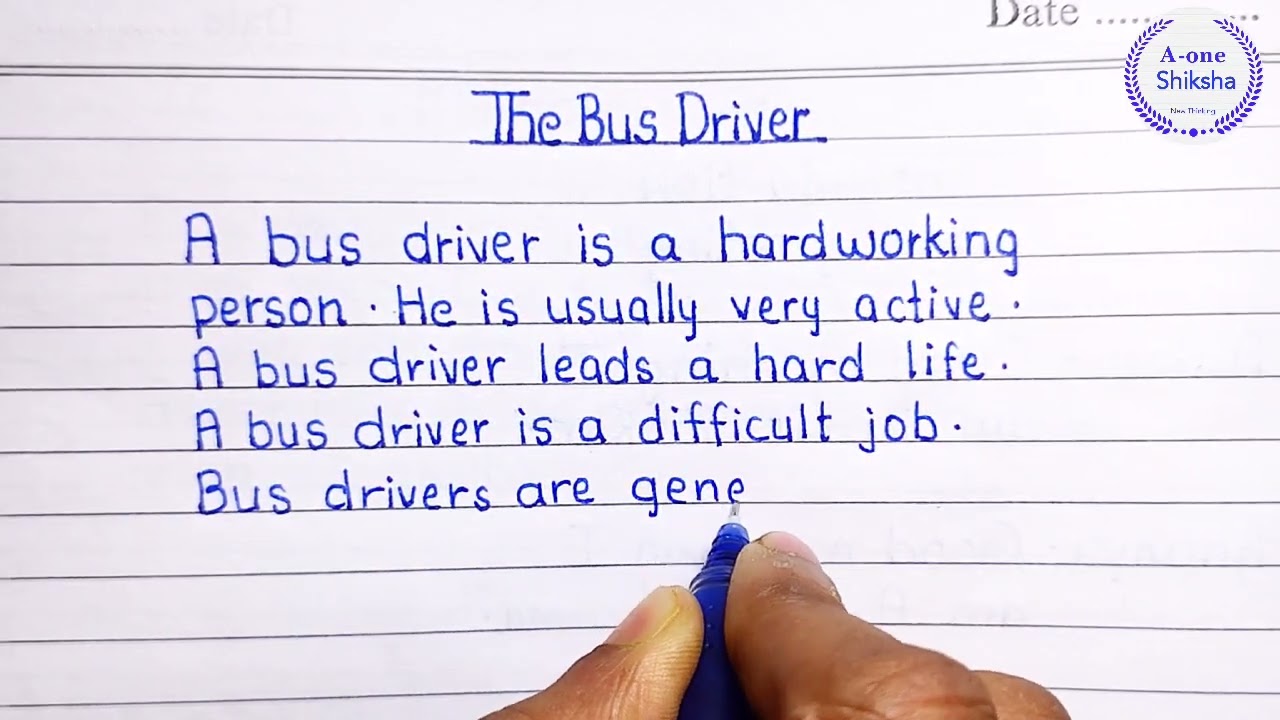 Date ..............
A-one
Shiksha
New Thinking
The Bus Driver
A bus driver is a hardworking
person. He is usually very active.
A bus driver leads a hard life.
A bus driver is a difficult job.
Bus drivers are gene